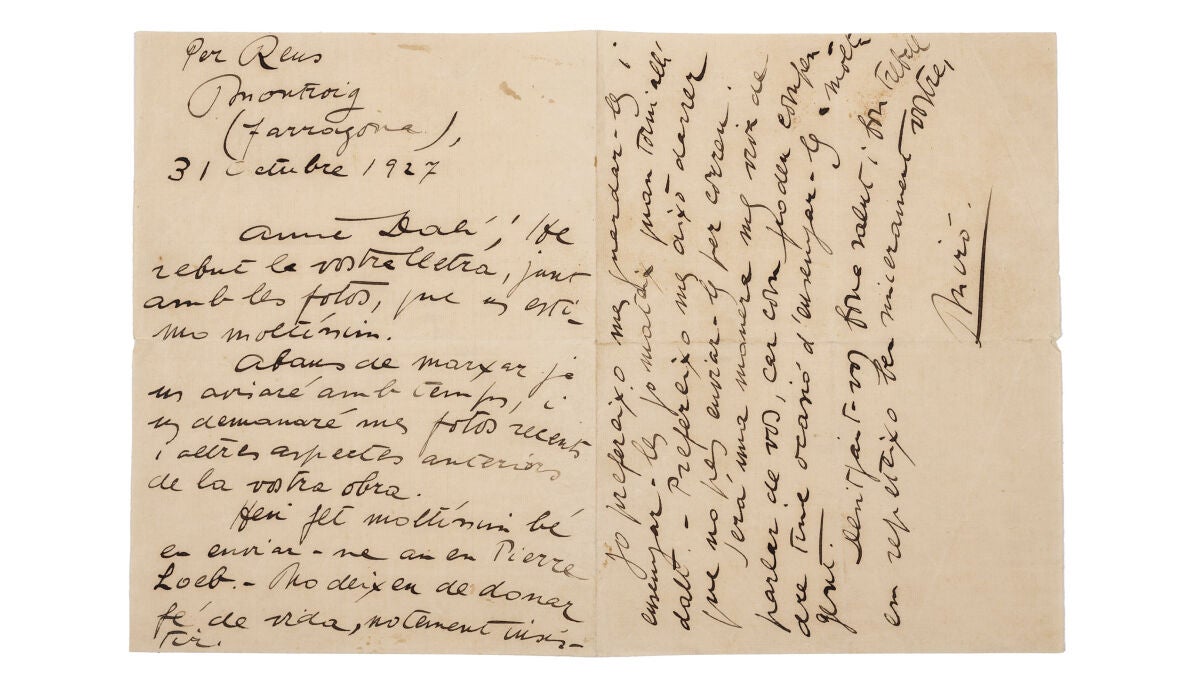 Per Reus
Montroig
(Tarragona),
31 Octubre 1927
Amic Dalí, He
rebut la vostra lletra, junt
amb les fotos, que us esti-
mo moltíssim.
Abans de marxar ja
us avisaré amb temps, i
us demanaré mes fotos recents
i altres aspectes anteriors
de la vostra obra.
Heu fet moltíssim bé
en enviar-ne an en Pierre
Loeb.- No deixeu de donar
fé de vida, notement insis-
tir.
Jo prefereixo mes guardar-les i
ensenyar-les jo mateix quan torni allí
dalt.- Prefereixo mes això darrer
que no pas enviar-les per correu.
Serà una manera mes viva de
parlar de vos, car com podeu compen-
dre tinc ocasió d'ensenyar-les a molta
gent.
Desitjant-vos bona salut i bon treball
em repeteixo ben sincerament vostre,
Miró.